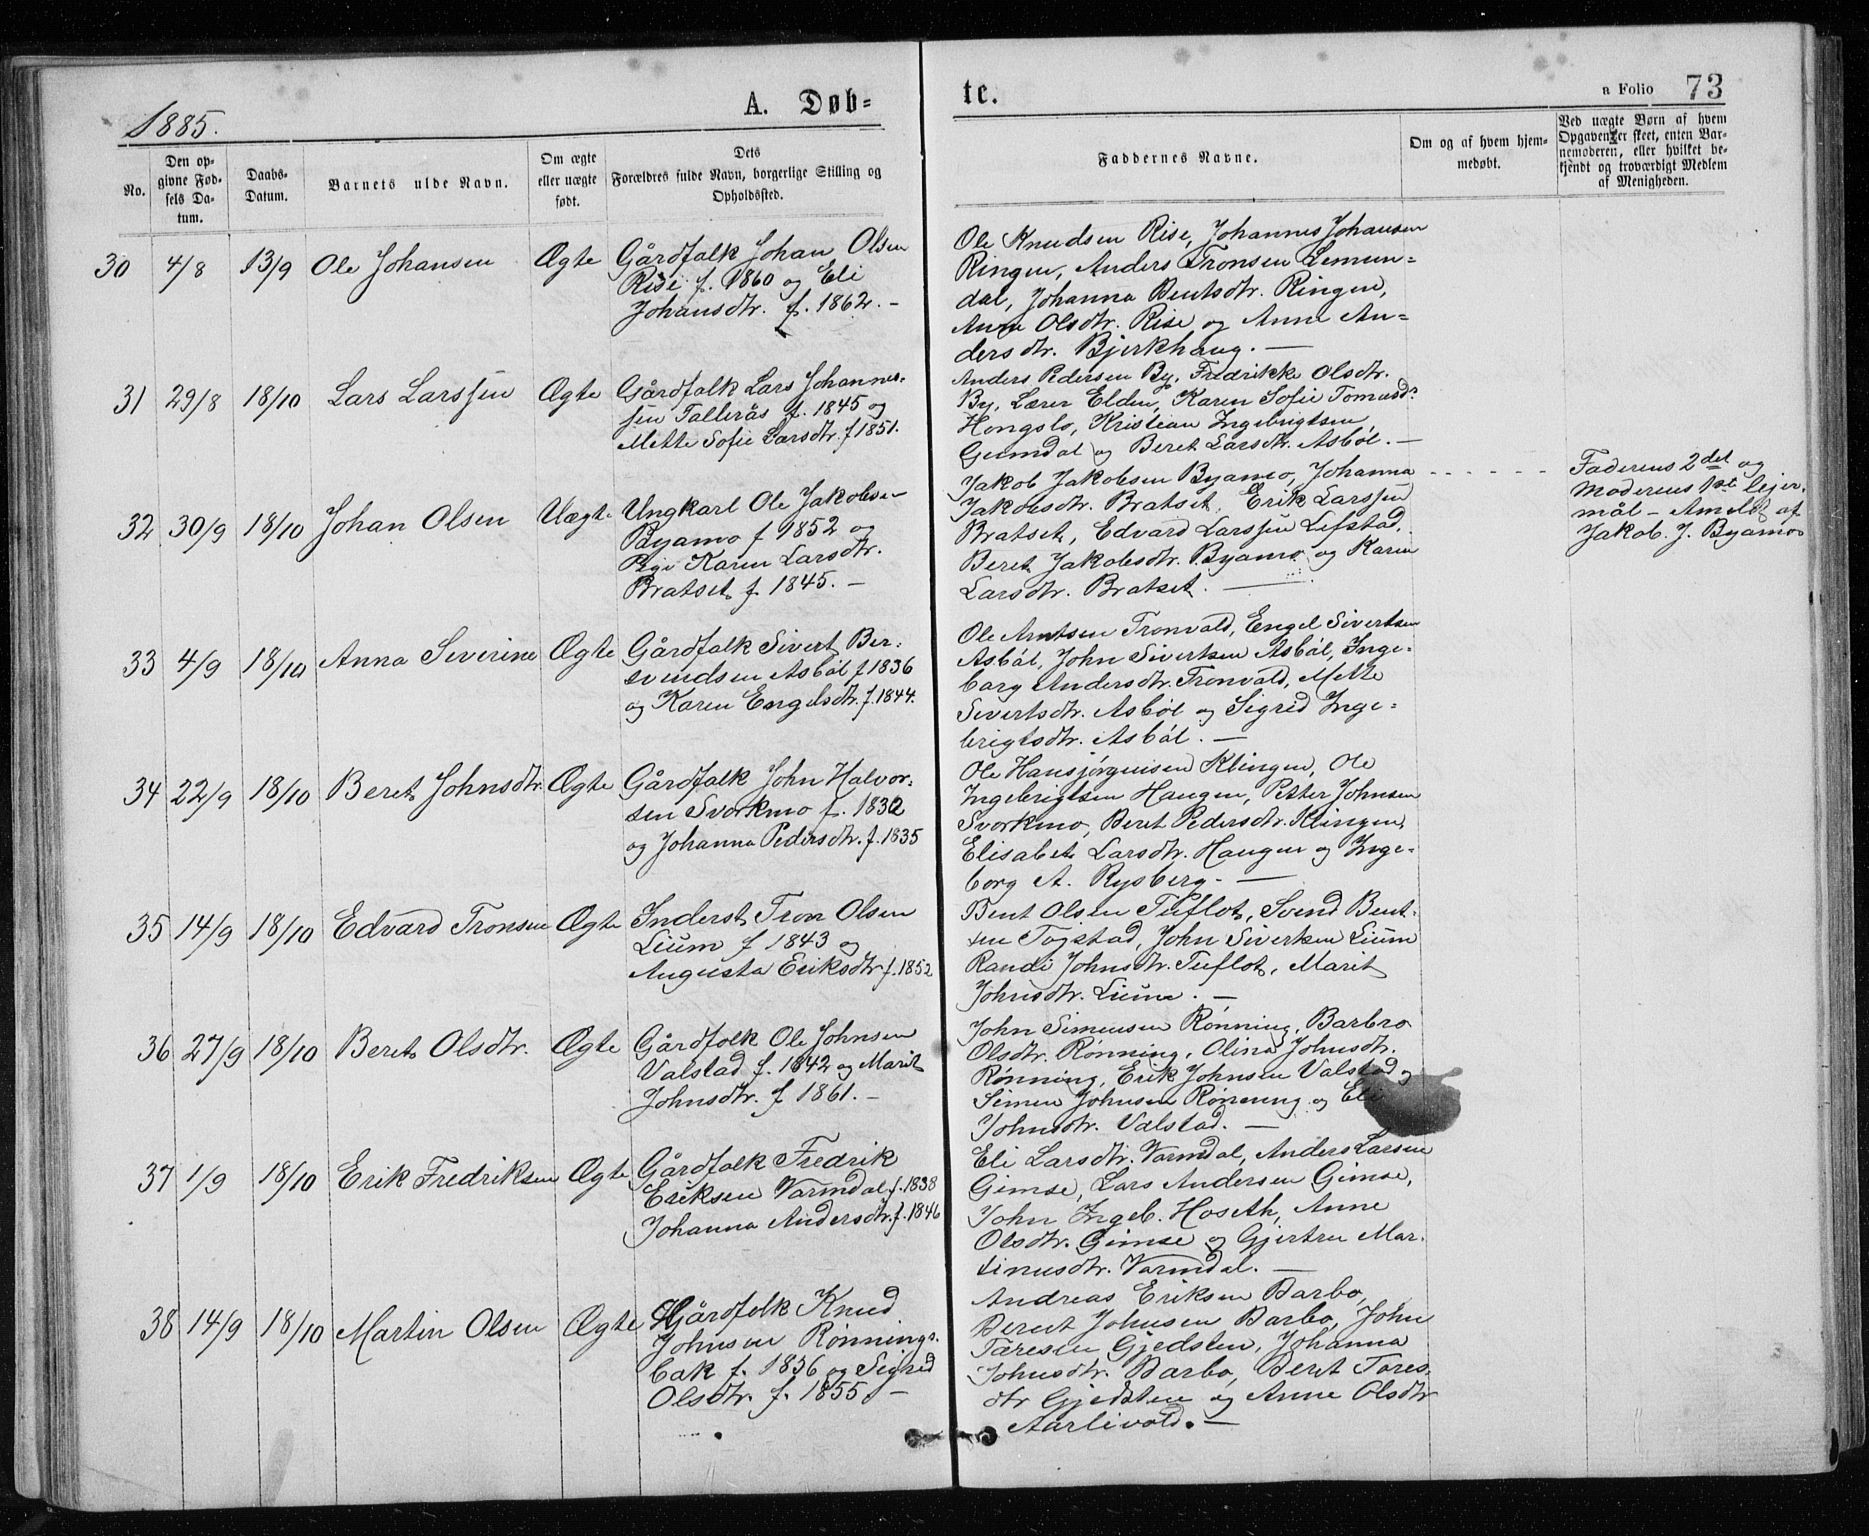 1885.
A. Døb-
te.
a Folio 73
No.
Den op-
givne Fød-
sels Da-
tum.
Daabs-
Datum.
Barnets ulde Navn.
Om ægte
eller uægte
født.
Dets
Forældres fulde Navn, borgerlige Stilling og
Opholdssted.
Faddernes Navne.
Om og af hvem hjem-
medøbt.
Ved uægte Børn af hvem
Opgaven er skeet, enten Bar-
nemoderen, eller hvilket be-
kjendt og troværdigt Medlem
af Menigheden.
30 4/8 13/9 Ole Johansen Ægte
Gårdfolk Johan Olsen
Rise f. 1860 og Eli
Johansdtr. f. 1862. -
Ole Knudsen Rise, Johannes Johansen
Ringen, Anders Tronsen Lemun-
dal, Johanna Bentsdtr. Ringen,
Anne Olsdtr. Rise og Anne An-
dersdtr. Bjerkhaug. -
31 29/8 18/10 Lars Larssen Ægte
Gårdfolk Lars Johannes-
sen Tallerås f. 1845 og
Mette Sofie Larsdtr. f 1851.
Anders Pedersen By, Fredrikke Olsdtr.
By, Lærer Elden, Karen Sofie Tomasd.
Hongslo, Kristian Ingebrigtsen
Gumdal og Beret Larsdtr. Asbøl. -
32 30/9 18/10 Johan Olsen Uægte
Ungkarl Ole Jakobsen
Byamo f 1852 og
Pige Karen Larsdtr.
Bratset f 1845. -
Jakob Jakobsen Byamo, Johanna
Jakobsdtr. Bratset, Erik Larssen
Bratset, Edvard Larssen Lefstad,
Beret Jakobsdtr. Byamo og Karen
Larsdtr. Bratset. -
Faderens 2det og
Moderens 1ste lejer-
mål - Anmeldt af
Jakob. J. Byamo
33 4/9 18/10 Anna Severine Ægte
Gårdfolk Sivert Ber-
svendsen Asbøl f 1836
og Karen Engelsdtr. f. 1844.
Ole Arntsen Tronvold, Engel Sivertsen
Asbøl, John Sivertsen Asbøl, Inge-
borg Andersdtr. Tronvold, Mette
Sivertsdtr. Asbøl og Sigrid Inge-
brigtsdtr. Asbøl. -
34 22/9 18/10 Beret Johnsdtr. Ægte
Gårdfolk John Halvor-
sen Svorkmo f. 1832
og Johanna Pedersdtr. f. 1835
Ole Hansjørgensen Klingen, Ole
Ingebrigtsen Haugen, Petter Johnsen
Svorkmo, Beret Pedersdtr. Klingen,
Elisabet Larsdtr. Haugen og Inge-
borg A. Rysberg. -
35 14/9 18/10 Edvard Tronsen Ægte
Inderst Tron Olsen
Lium f 1843 og
Augusta Eriksdtr f. 1852
Bent Olsen Tuflot, Svend Bent-
sen Togstad, John Sivertsen Lium
Randi Johnsdtr. Tuflot, Marit
Johnsdtr. Lium. -
36 27/9 18/10 Beret Olsdtr. Ægte
Gårdfolk Ole Johnsen
Valstad f. 1842 og Marit
Johnsdtr. f 1861. -
John Simensen Rønning, Barbro
Olsdtr. Rønning, Olina Johnsdtr.
Rønning, Erik Johnsen Valstad og
Simen Johnsen Rønning og Eli
Johnsdtr. Valstad. -
37 1/9 18/10 Erik Fredriksen Ægte
Gårdfolk Fredrik
Eriksen Varmdal f. 1838
Johanna Andersdtr. f. 1846
Eli Larsdtr. Varmdal, Anders Larsen
Gimse, Lars Andersen Gimse,
John Ingeb. Hoseth, Anne
Olsdtr. Gimse og Gjertru Mar-
tinusdtr. Varmdal. -
38 14/9 18/10 Martin Olsen Ægte
Gårdfolk Knud
Johnsen Rønnings-
bak f. 1836 og Sigrid
Olsdtr. f. 1855. -
Andreas Eriksen Barbo,
Beret Johnsen Barbo, John
Taresen Gjedsten, Johanna
Johnsdtr. Barbo, Beret Tores-
dtr Gjedsten og Anne Olsdtr
Aarlivold. -